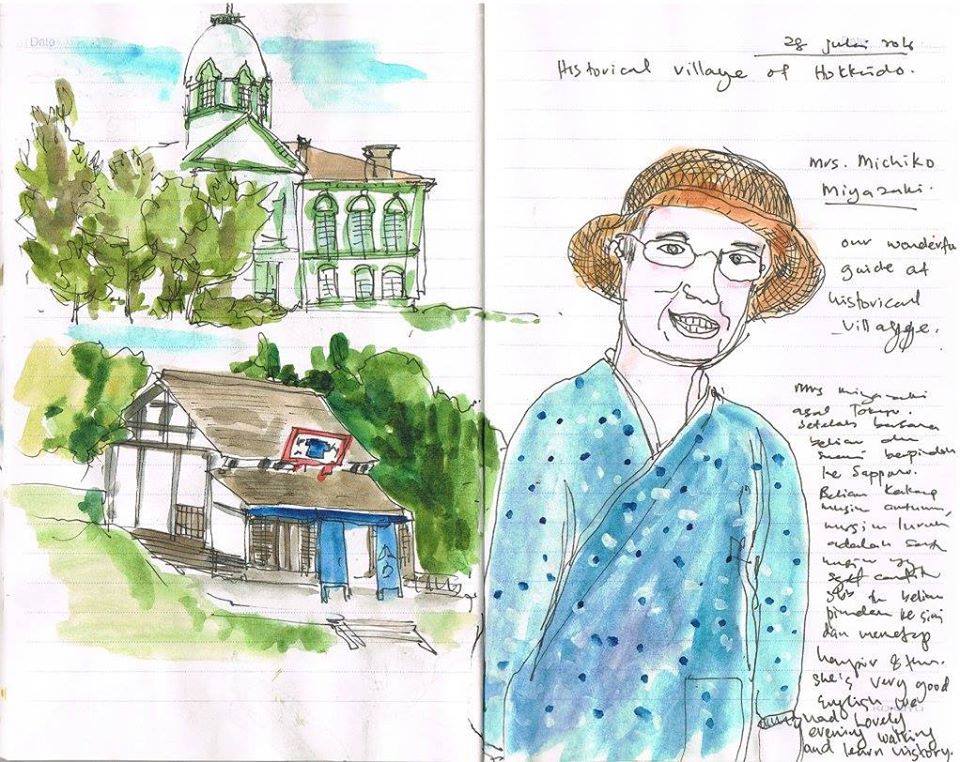 Date
28 Juli
Historical village of Hokkaido.
Mrs. Michiko
Miyazaki.
our wonderful
guide at
historical
village.
Mrs Miyazaki
asal Tokyo.
setelah bersama
beliau dan
suami berpindah
ke Sapporo.
Beliau
musim autumn,
musim luruh
adalah satu
musim yg
beliau
pindah ke sini
dan menetap
hampir 8 thn.
she's very good
English we
had lovely
evening walking
and learn history.